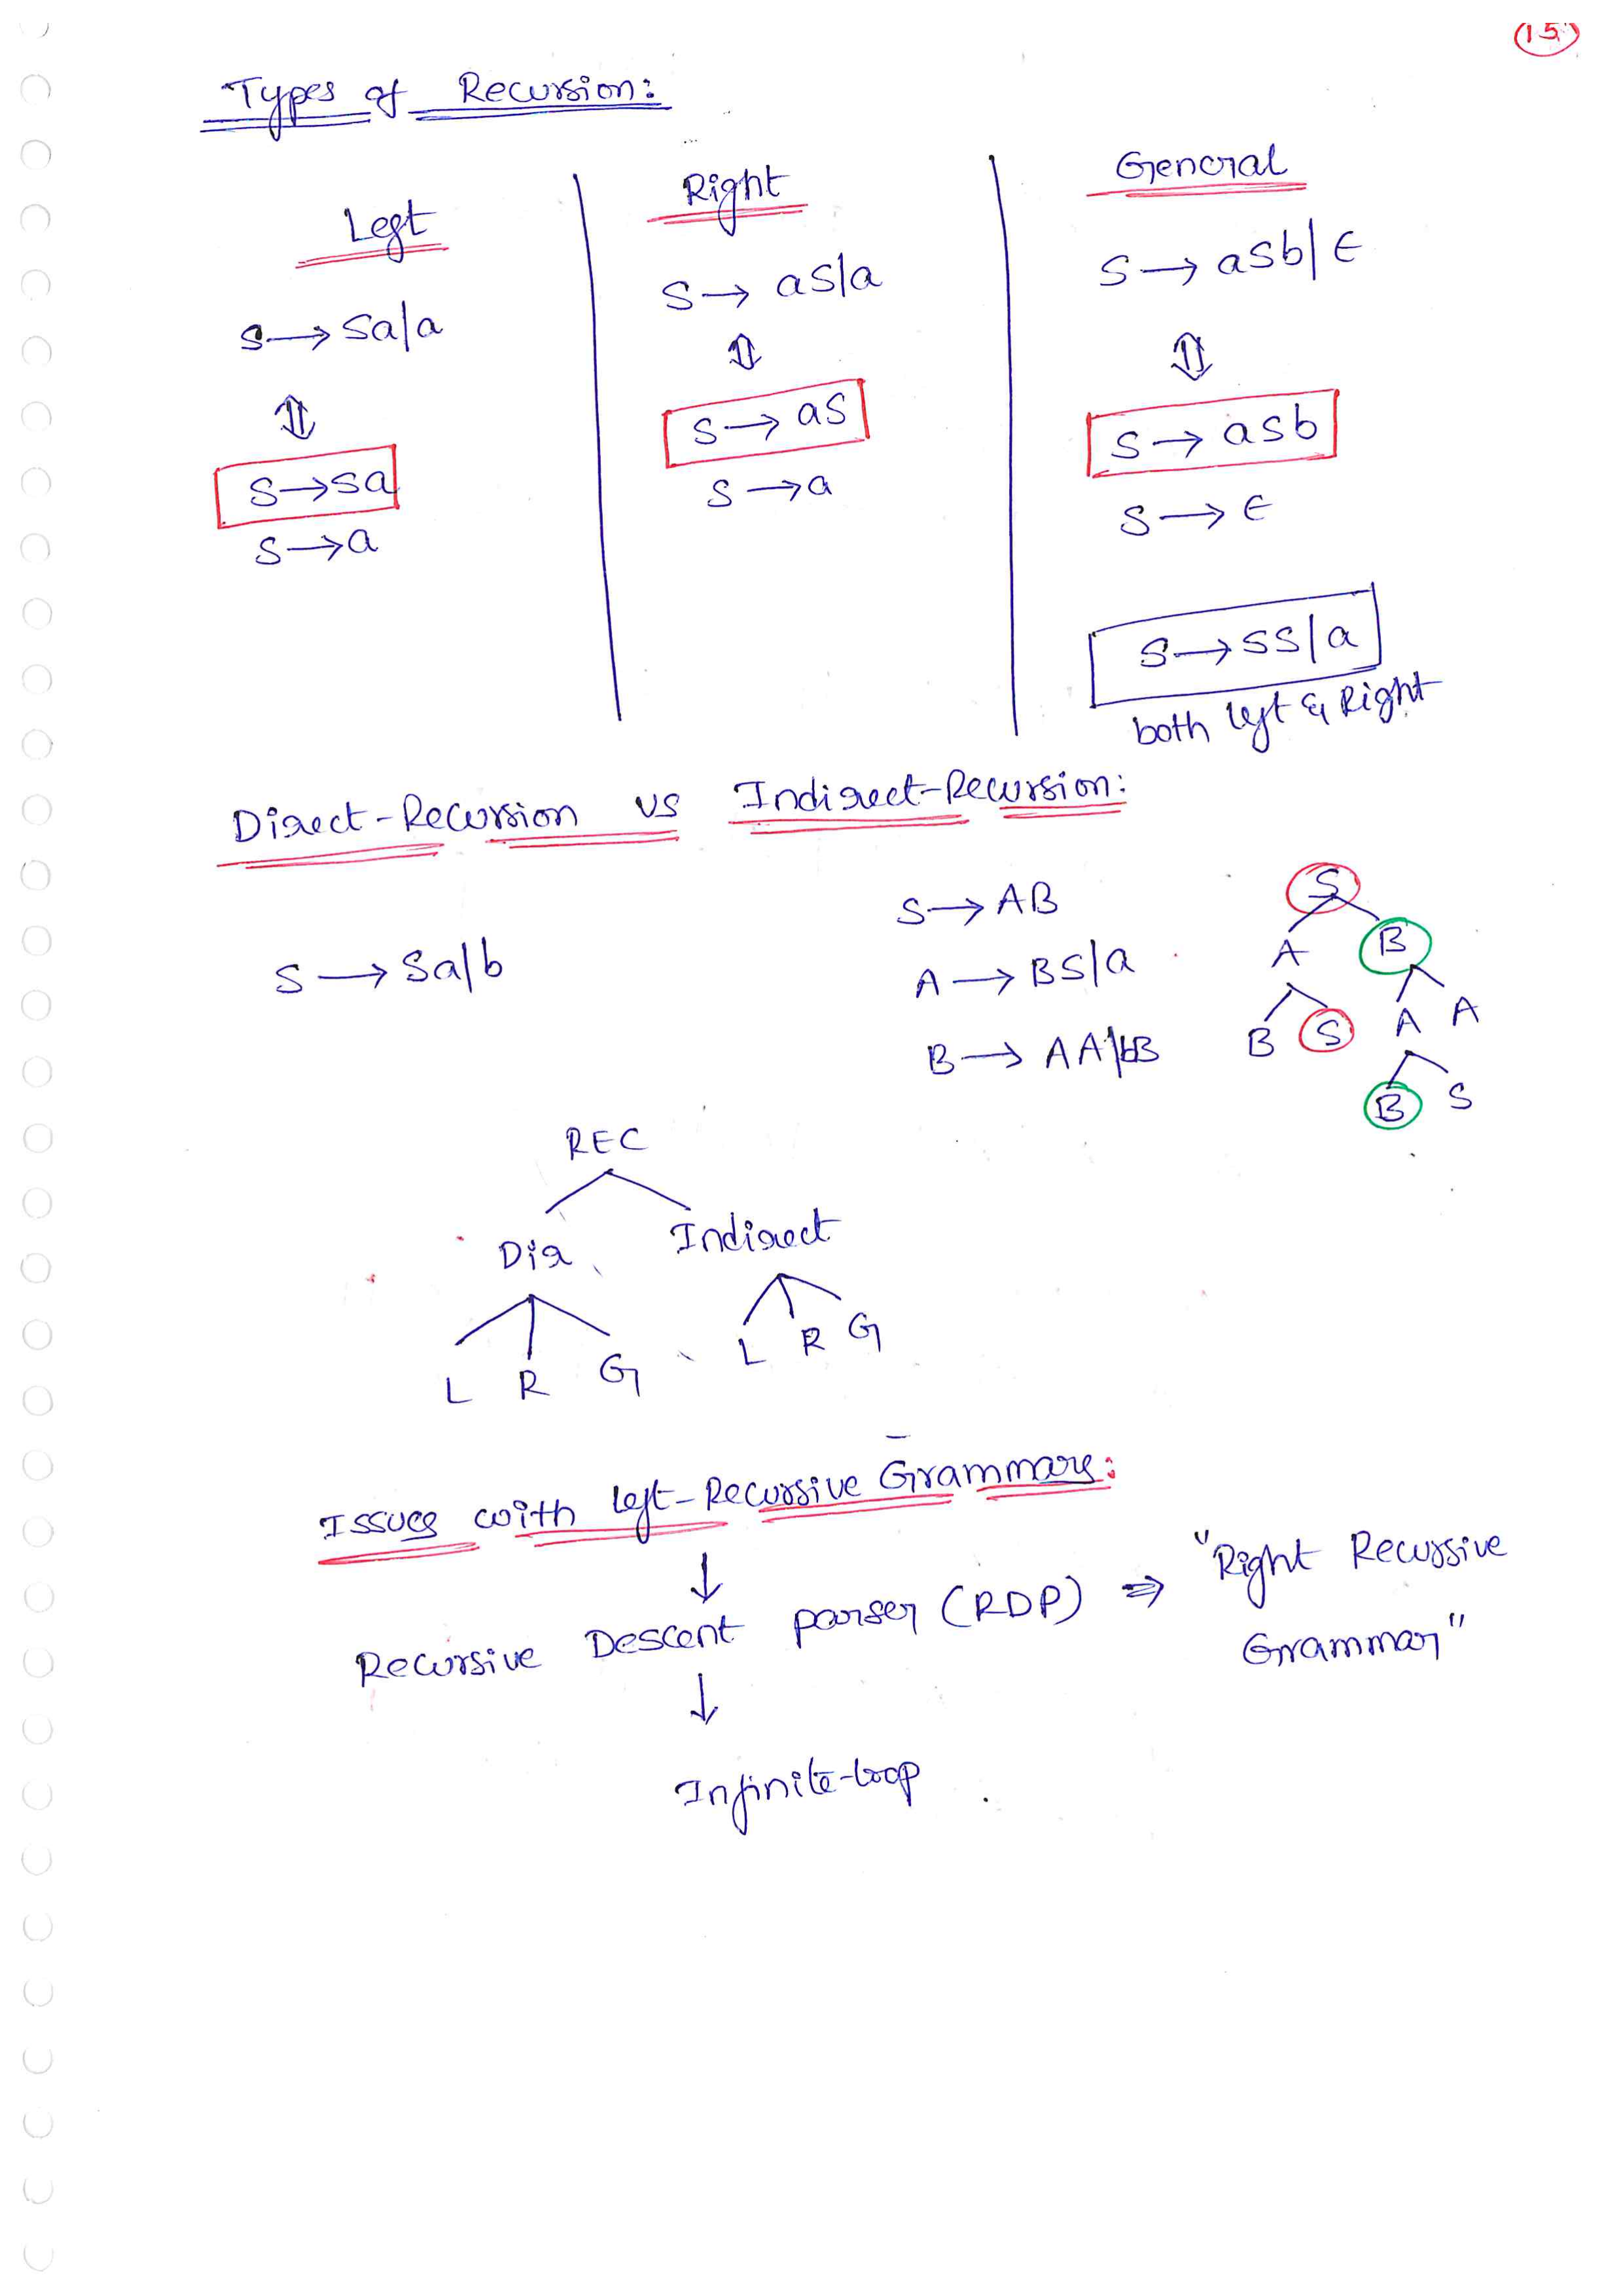 15
Types of Recursion:
Left
S → Sa|a
⇕
S → Sa
S → a
Right
S → aS|a
⇕
S → aS
S → a
General
S → aSb|ϵ
⇕
S → aSb
S → ϵ
S → SS|a
both left & Right
Direct-Recursion vs Indirect-Recursion:
S → Sa|b
S → AB
A → BS|a
B → AA|bB
S
A B
B S A A
B S
REC
Dir Indirect
L R G L R G
Issues with left-Recursive Grammars:
↓
Recursive Descent parser (RDP) ⇒ "Right Recursive
Grammar"
↓
Infinite-loop